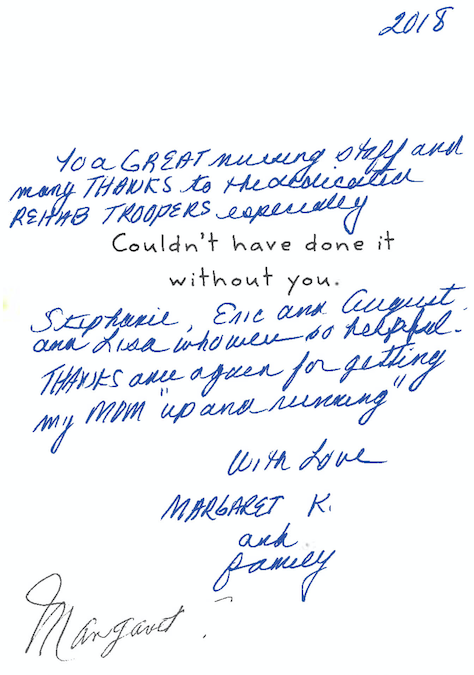 2018
To a GREAT nursing staff and
many THANKS to the dedicated
REHAB TROOPERS especially
Couldn't have done it
without you.
Stephanie, Eric and August
and Lisa who were so helpful.
THANKS once again for getting
my MOM "up and running"
With Love
MARGARET K.
and
family
Margaret